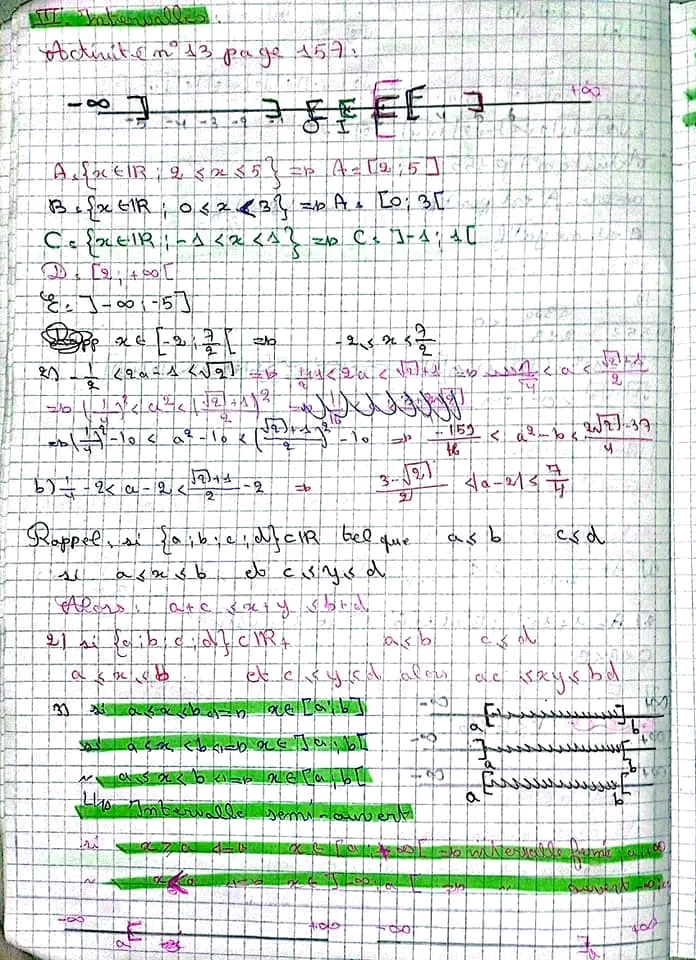 III. Intervalles.
Activité n° 13 page 157.
-∞ ] ] [ [ [ [ ] +∞
-5 -4 -3 -2 -1 0 1 4 5 6
A = {x ∈ IR ; 2 ≤ x ≤ 5} => A = [2 ; 5]
B = {x ∈ IR ; 0 ≤ x < 3} => A = [0 ; 3[
C = {x ∈ IR ; -1 < x < 1} => C = ]-1 ; 1[
D = [2 ; +∞[
E = ]-∞ ; -5]
x ∈ [-2 ; 7/2[ => -2 ≤ x ≤ 7/2
2) -1/2 < 2a - 1 < √2 => 1/2 < 2a < √2 + 1 => 1/4 < a < (√2 + 1)/2
=> (1/4)² < a² < ((√2 + 1)/2)²
=> (1/4)² - 10 < a² - 10 < ((√2 + 1)/2)² - 10 => -159/16 < a² - 10 < (2√2 - 37)/4
b) 1/4 - 2 < a - 2 < (√2 + 1)/2 - 2 => (3 - √2)/2 < |a - 2| ≤ 7/4
Rappel. si {a ; b ; c ; d} ⊂ IR tel que a ≤ b c ≤ d
si a ≤ x ≤ b et c ≤ y ≤ d
Alors. a + c ≤ x + y ≤ b + d
2) si {a ; b ; c ; d} ⊂ IR+ a ≤ b c ≤ d
a ≤ x ≤ b et c ≤ y ≤ d alors ac ≤ xy ≤ bd
3) si a ≤ x ≤ b <=> x ∈ [a ; b] -∞ a [ ] b +∞
si a < x < b <=> x ∈ ]a ; b[ -∞ ] a [ b +∞
~ a ≤ x < b <=> x ∈ [a ; b[ -∞ a [ [ b +∞
Intervalle semi-ouvert
si x ≥ a <=> x ∈ [a ; +∞[ => intervalle fermé a, ∞
~ x < a <=> x ∈ ]-∞ ; a[ => ~ ouvert -∞
-∞ a [ +∞ -∞ a +∞